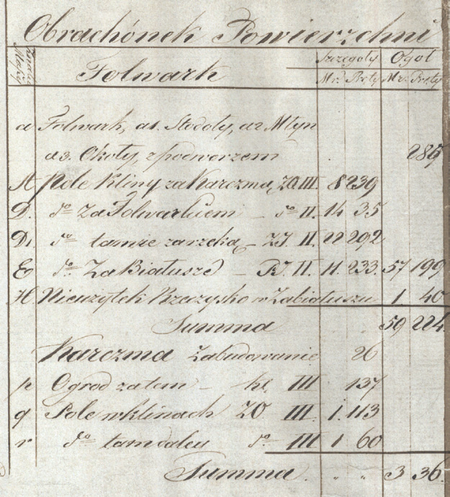 Obrachónek Powierzchni
Szczegoły Ogoł
Folwark Mr. Pręty Mr. Pręty
a Folwark, a1. Stodoły, a2 Młyn
a3. Chołty, z podworzem 285
A Pole Kliny za Karczmą, ZO III. 8 239
D. do Za Folwarkiem – do II. 14 35
D1 do tamże za rzeką – ZI II. 22 292
E do Za Białusze – II. 11. 233 57 199
H Nieużytek Brzezysko w Zabiałuszu 1 40
Summa 59 224
Karczma Zabudowanie 26
p Ogrod za tem – III 137
q Pole w klinach ZO III. 1. 113
r do tam do III 1 60
Summa 3 36.